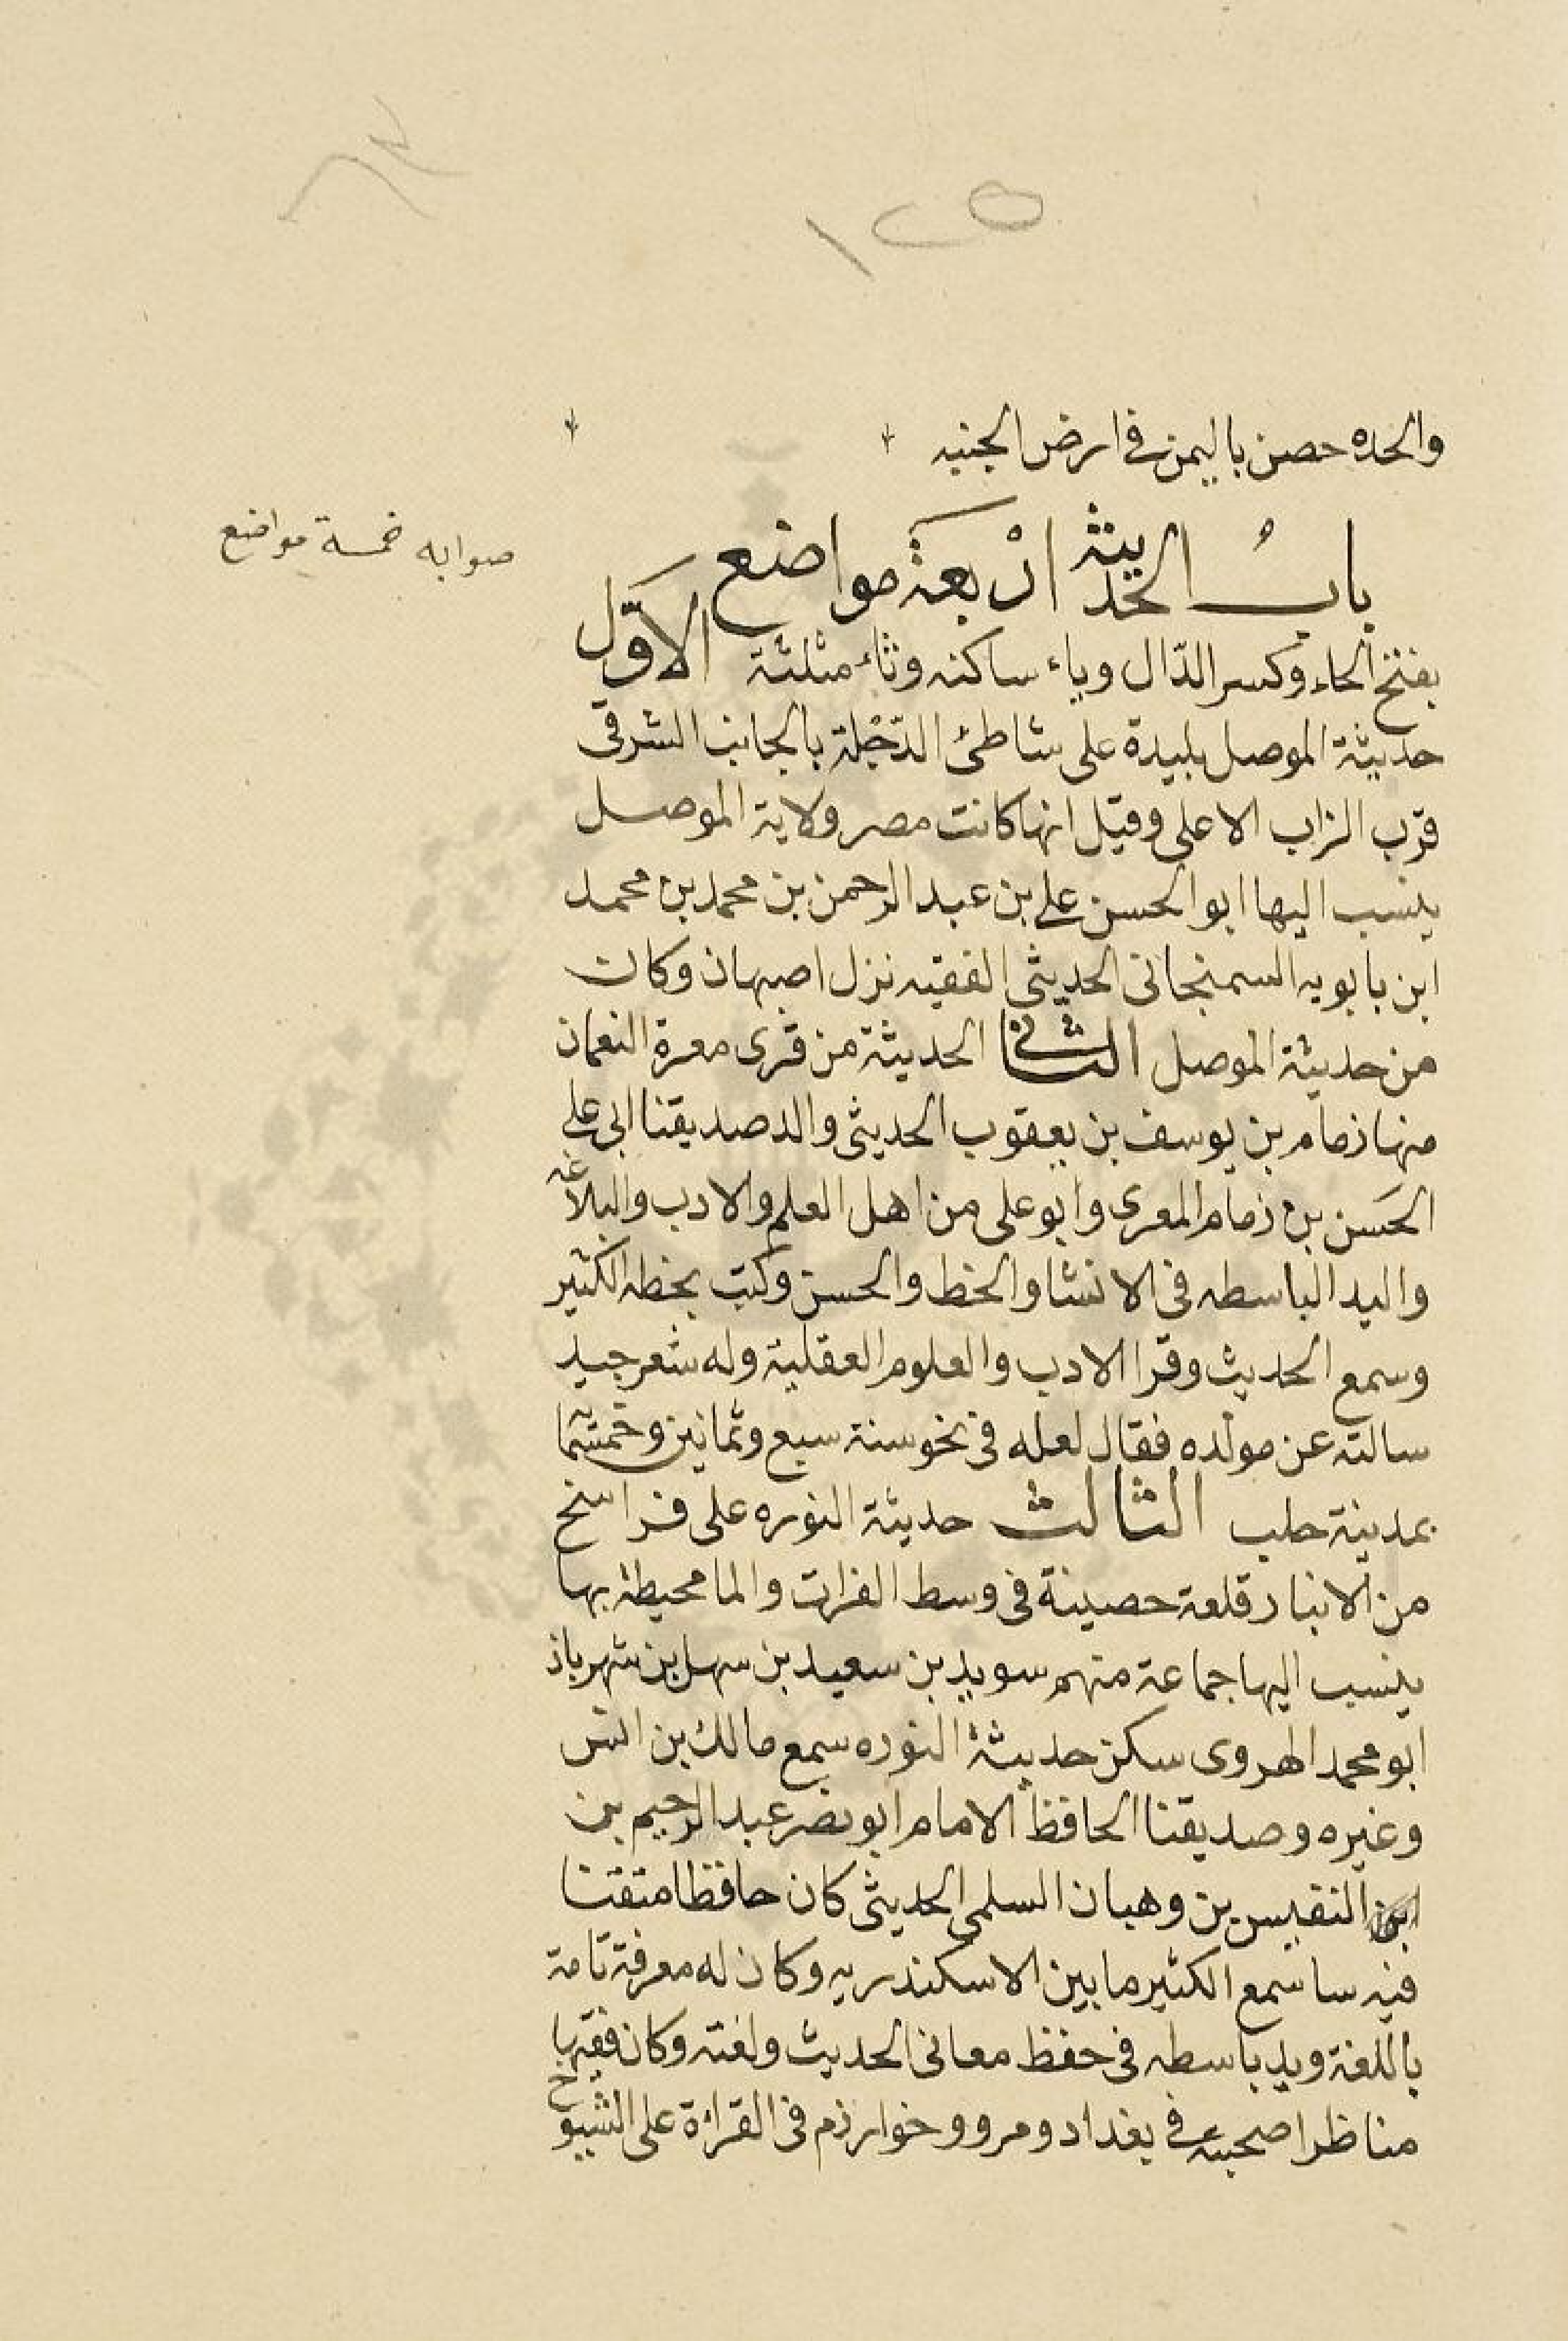 ١٢٥
والحده حصن باليمن في ارض الجنبه
باب الحديثة اربعة مواضع
صوابه خمسة مواضع
بفتح الحاء وكسر الدّال وياء ساكنه وثاء مثلثة الاوّل
حديثة الموصل بليدة على شاطئ الدّجْلة بالجانب الشرقى
قرب الزاب الاعلى وقيل انها كانت مصر ولاية الموصل
ينسب اليها ابو الحسن على بن عبد الرحمن بن محمد بن محمد
ابن بابويه السمنجانى الحديثى الفقيه نزل اصبهان وكان
من حديثة الموصل الثانى الحديثة من قرى معرة النعمان
منها زمام بن يوسف بن يعقوب الحديثى والد صديقنا ابى على
الحَسن بن زمام المعرى وابو على من اهل العلم والادب والبلاغه
واليد الباسطه فى الانشا والخط والحسن وكتب بخطه الكثير
وسمع الحديث وقرا الادب والعلوم العقلية وله شعر جيد
سالته عن مولده فقال لعله فى نحو سنة سبع وثمانين وخمسمائه
بمدينة حلب الثالث حديثة النوره على فراسخ
من الانبار قلعة حصينة فى وسط الفرات والما محيطة بها
ينسب اليها جماعة منهم سويد بن سعيد بن سهل بن شهرياذ
ابو محمد الهروى سكن حديثة النوره سمع مالك بن انس
وغيره وصديقنا الحافظ الامام ابو نصر عبد الرحيم بن
النفيس بن وهبان السلمى الحديثى كان حافظا متقنا
فيه سا سمع الكثير ما بين الاسكندريه وكان له معرفة تامة
باللغة ويد باسطه فى حفظ معانى الحديث ولغته وكان فقيها
مناظرا صحبته فى بغداد ومرو وخوارزم فى القراءة على الشيوخ